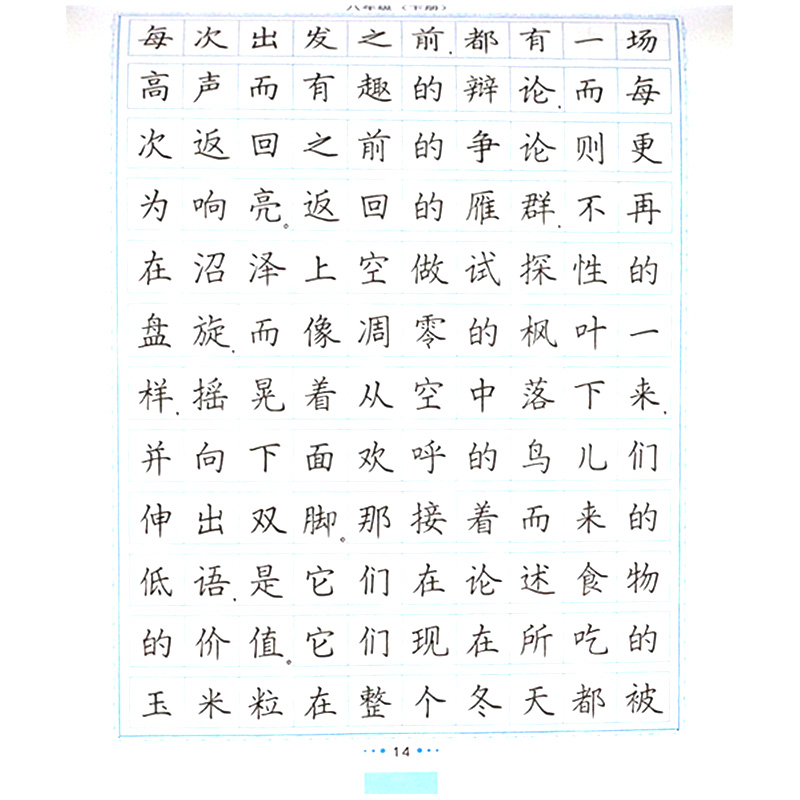 八年级（下册）
每次出发之前,都有一场
高声而有趣的辩论,而每
次返回之前的争论则更
为响亮。返回的雁群,不再
在沼泽上空做试探性的
盘旋,而像凋零的枫叶一
样,摇晃着从空中落下来,
并向下面欢呼的鸟儿们
伸出双脚。那接着而来的
低语,是它们在论述食物
的价值。它们现在所吃的
玉米粒在整个冬天都被
14